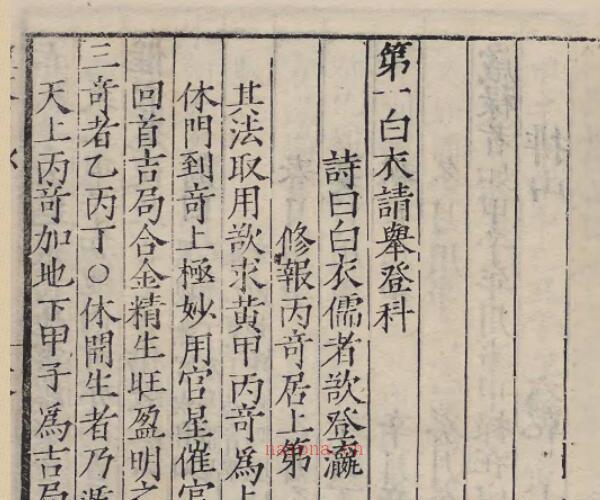 第一白衣請舉登科
詩曰白衣儒者欲登瀛
修報丙奇居上第
其法取用欲求黃甲丙奇爲上
休門到奇上極妙用官星催官
回首吉局合金精生旺盈明之
三奇者乙丙丁○休開生者乃遁
天上丙奇加地下甲子爲吉局